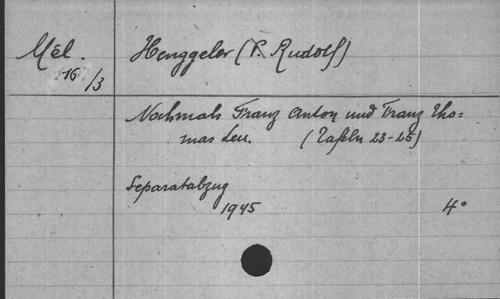 Mél. Henggeler (P. Rudolf)
16/3
Nochmals Franz Anton und Franz Tho=
mas Leu. (Tafeln 23-25)
Separatabzug
1945 4°